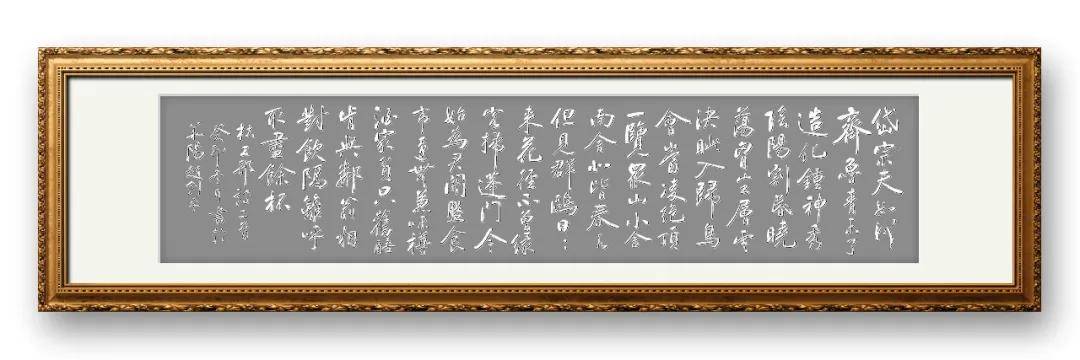 岱宗夫如何
齊魯青未了
造化鍾神秀
陰陽割昏曉
蕩胸生層雲
決眥入歸鳥
會當凌絕頂
一覽眾山小舍
南舍北皆春水
但見群鷗日:
来花徑不曾緣
客掃蓬門今
始為君開盤食
市遠無兼味樽
酒家貧只舊醅
肯與鄰翁相
對飲隔籬呼
取盡餘杯
杜工部詩二首
癸卯年月書於